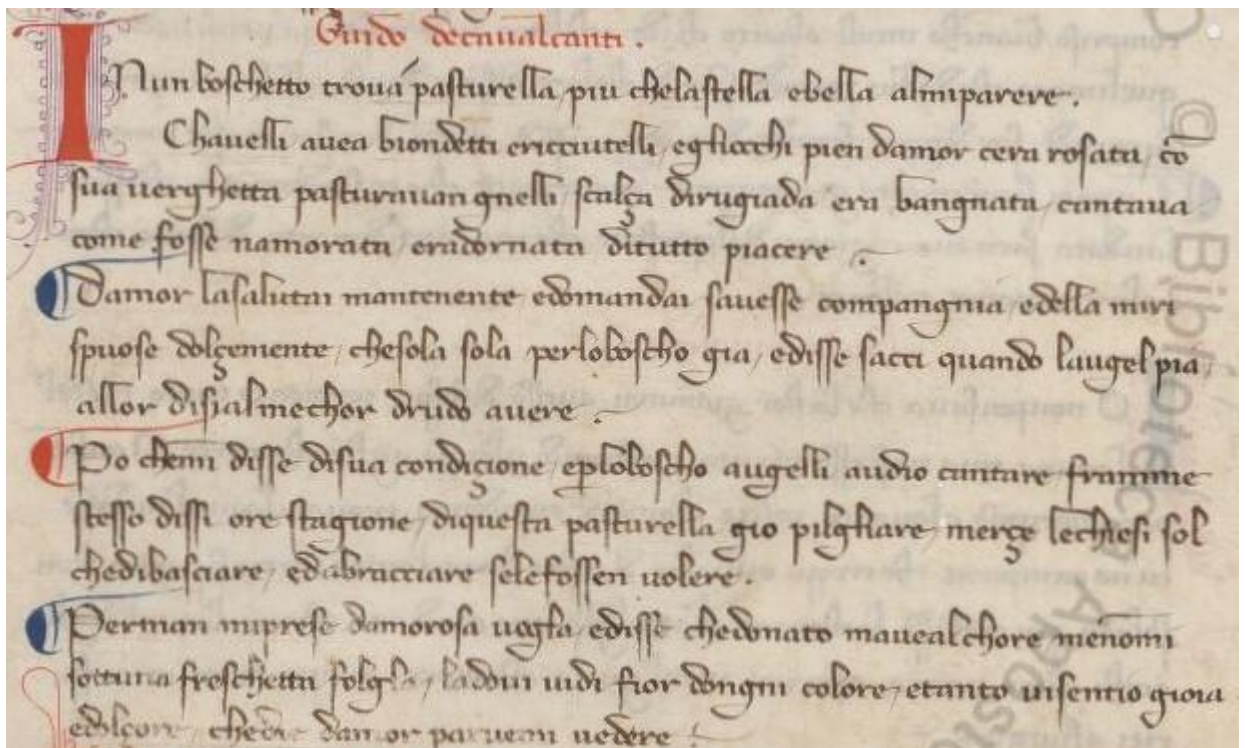 Guido decavalcanti.
INun boschetto trova pasturella / piu chelastella ebella almiparere.
Chavelli avea biondetti ericciutelli / egliocchi pien damor cera rosata / cō
sua verghetta pasturavan gnelli / scalça dirugiada era bangnata / cantava
come fosse namorata / eradornata ditutto piacere
Damor lasalutai mantenente / edomandai savesse compangnia / edella mirī
spuose dolçemente / chesola sola perloboscho gia / edisse sacci quando laugel pia /
allor disialmechor drudo avere
Po chemi disse disua condiçione / eꝑloboscho augelli audio cantare / framme
stesso dissi ore stagione / diquesta pasturella gio pilgliare / merçe lechiesi sol
chedibasciare / edabracciare selefossen volere.
Perman miprese damorosa voglia / edisse chedonato mavealchore / menōmi
sottuna freschetta folglia / ladovi vidi fior dongni colore / etanto visentio gioia
edolçore / chedie damor parveavi vedere
Biblioteca Aposto